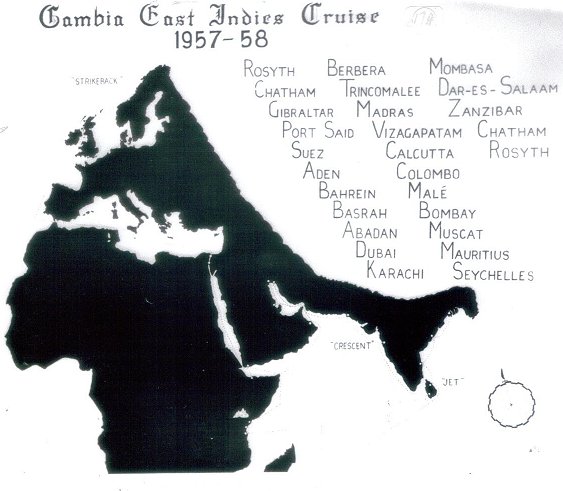 Gambia East Indies Cruise
1957-58
"STRIKEBACK"
ROSYTH BERBERA MOMBASA
CHATHAM TRINCOMALEE DAR-ES-SALAAM
GIBRALTAR MADRAS ZANZIBAR
PORT SAID VIZAGAPATAM CHATHAM
SUEZ CALCUTTA ROSYTH
ADEN COLOMBO
BAHREIN MALÉ
BASRAH BOMBAY
ABADAN MUSCAT
DUBAI MAURITIUS
KARACHI SEYCHELLES
"CRESCENT"
"JET"